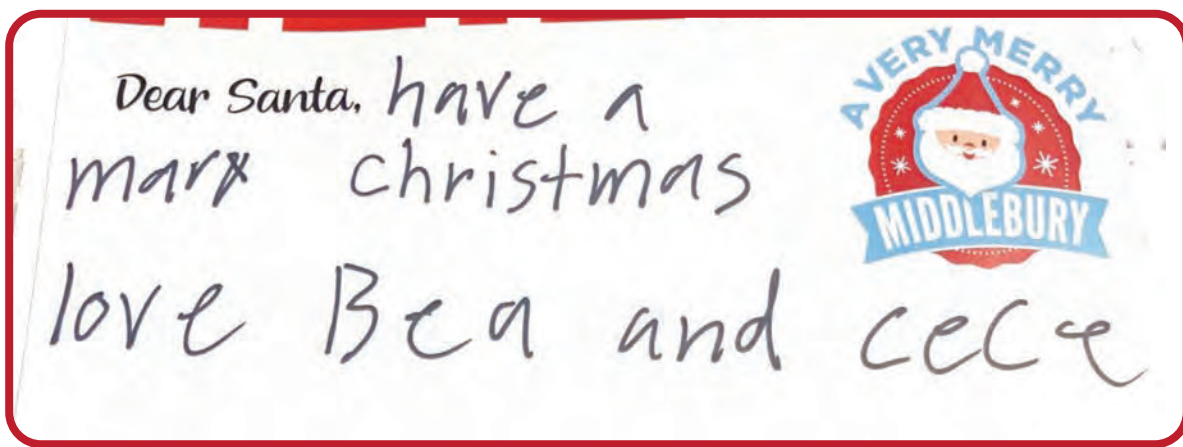 Dear Santa, have a
marx christmas
love Bea and cece
A VERY MERRY
MIDDLEBURY